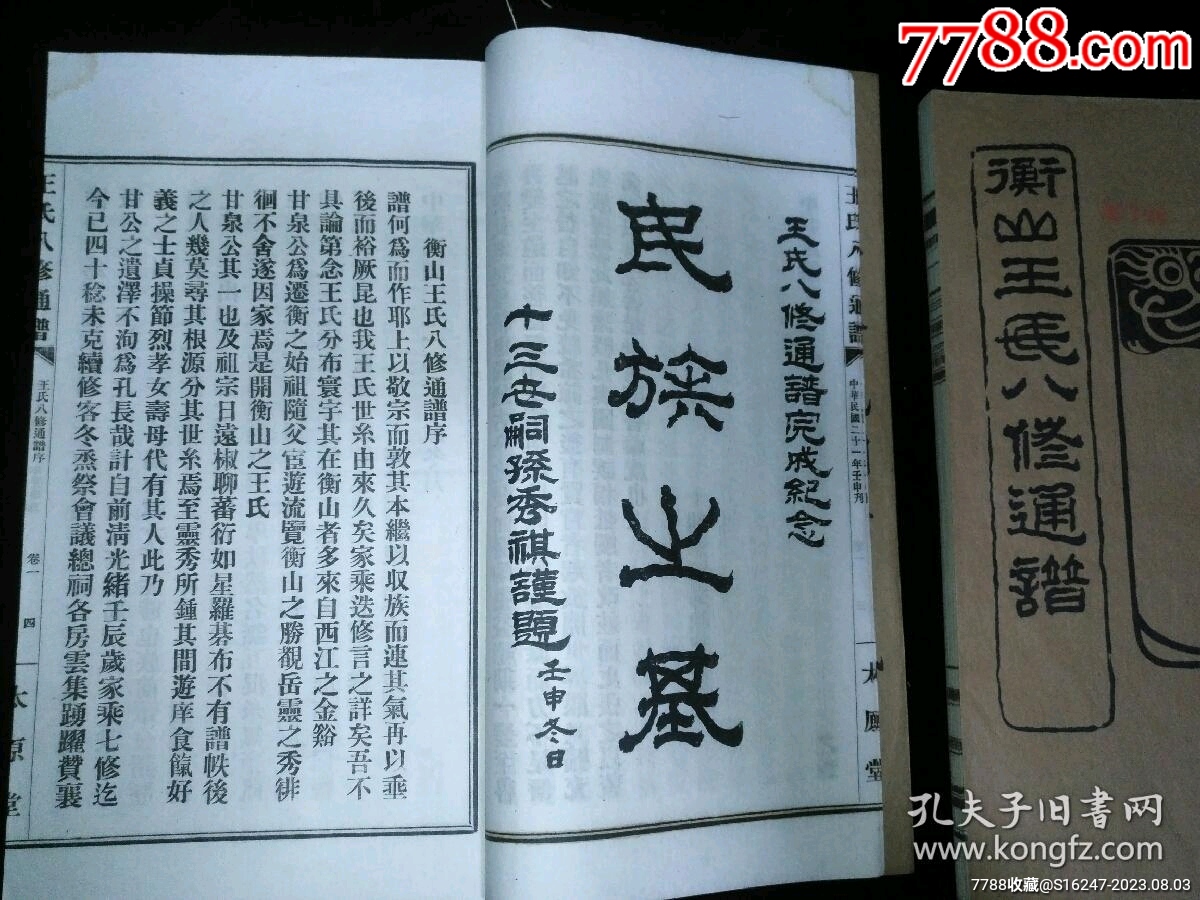 7788.com
衡山王氏八修通譜
王氏八修通譜完成紀念
民族之基
十三世嗣孫秀祺謹題
壬申冬日
王氏八修通譜
中華民國二十一年壬申刊
太原堂
衡山王氏八修通譜序
譜何爲而作耶上以敬宗而敦其本繼以収族而連其氣再以垂
後而裕厥昆也我王氏世系由來久矣家乘迭修言之詳矣吾不
具論第念王氏分布寰宇其在衡山者多來自西江之金谿
甘泉公爲遷衡之始祖隨父宦遊流覽衡山之勝覩岳靈之秀徘
徊不舍遂因家焉是開衡山之王氏
甘泉公其一也及祖宗日遠椒聊蕃衍如星羅碁布不有譜帙後
之人幾莫尋其根源分其世系焉至靈秀所鍾其間遊庠食餼好
義之士貞操節烈孝女壽母代有其人此乃
甘公之遺澤不洵爲孔長哉計自前清光緒壬辰歲家乘七修迄
今已四十稔未克續修客冬烝祭會議總祠各房雲集踴躍贊襄
王氏八修通譜
王氏八修通譜序
卷一
四
太原堂
孔夫子旧书网
www.kongfz.com
7788收藏@S16247-2023.08.03